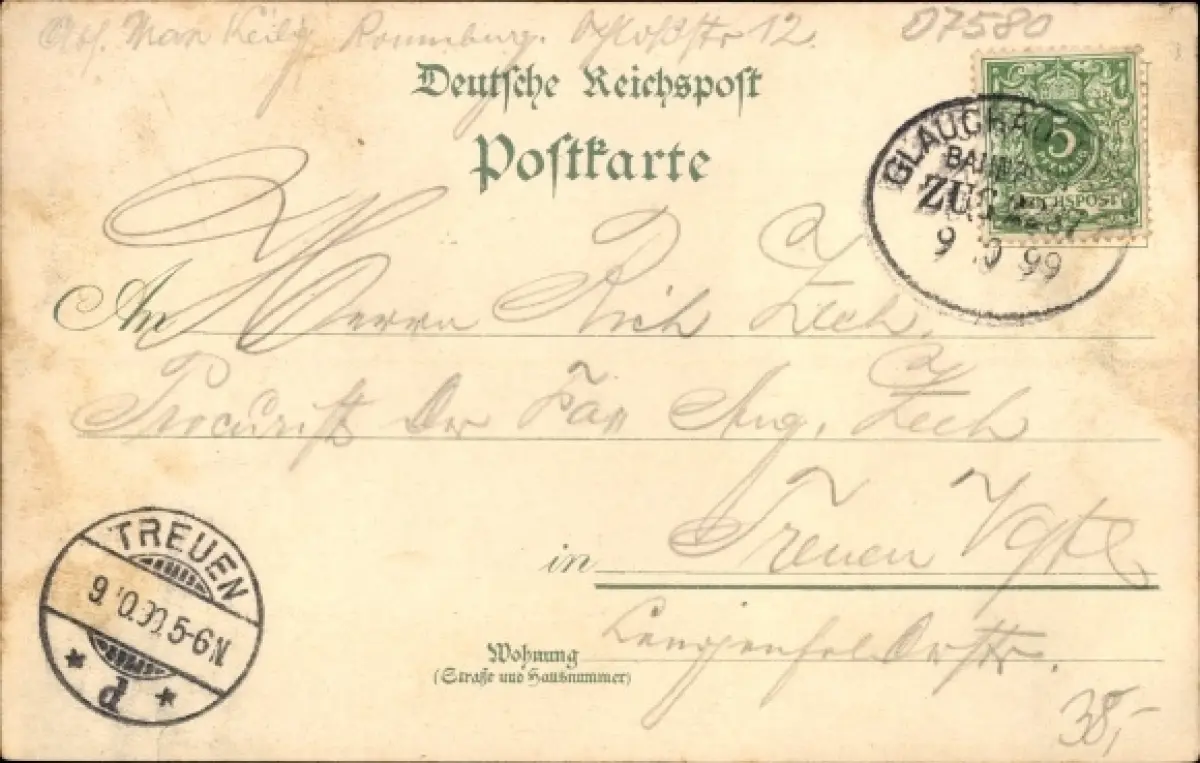 Abs. Max Keil Ronneburg. Schloßstr 12.
07580
Deutsche Reichspost
Postkarte
5
REICHSPOST
GLAUCHAU
ZUG
9 99
An Herrn Rich Zech.
Procurist der Fa Aug. Zech
in Treuen Vgtl
Wohnung
(Straße und Hausnummer)
Lengenfelderstr.
TREUEN
5-6N
* d *
38,-